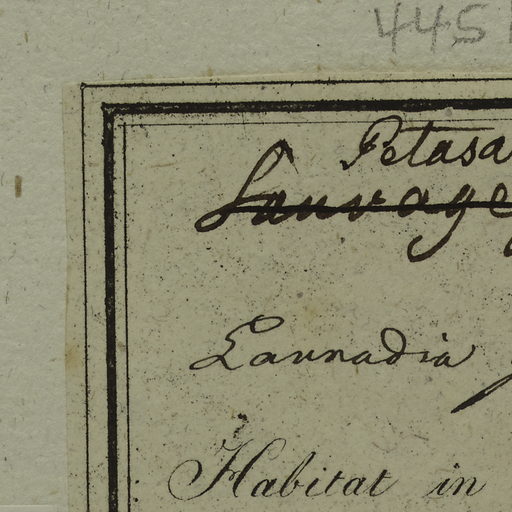 445
Petasa
Sauvage
Launadia
Habitat in